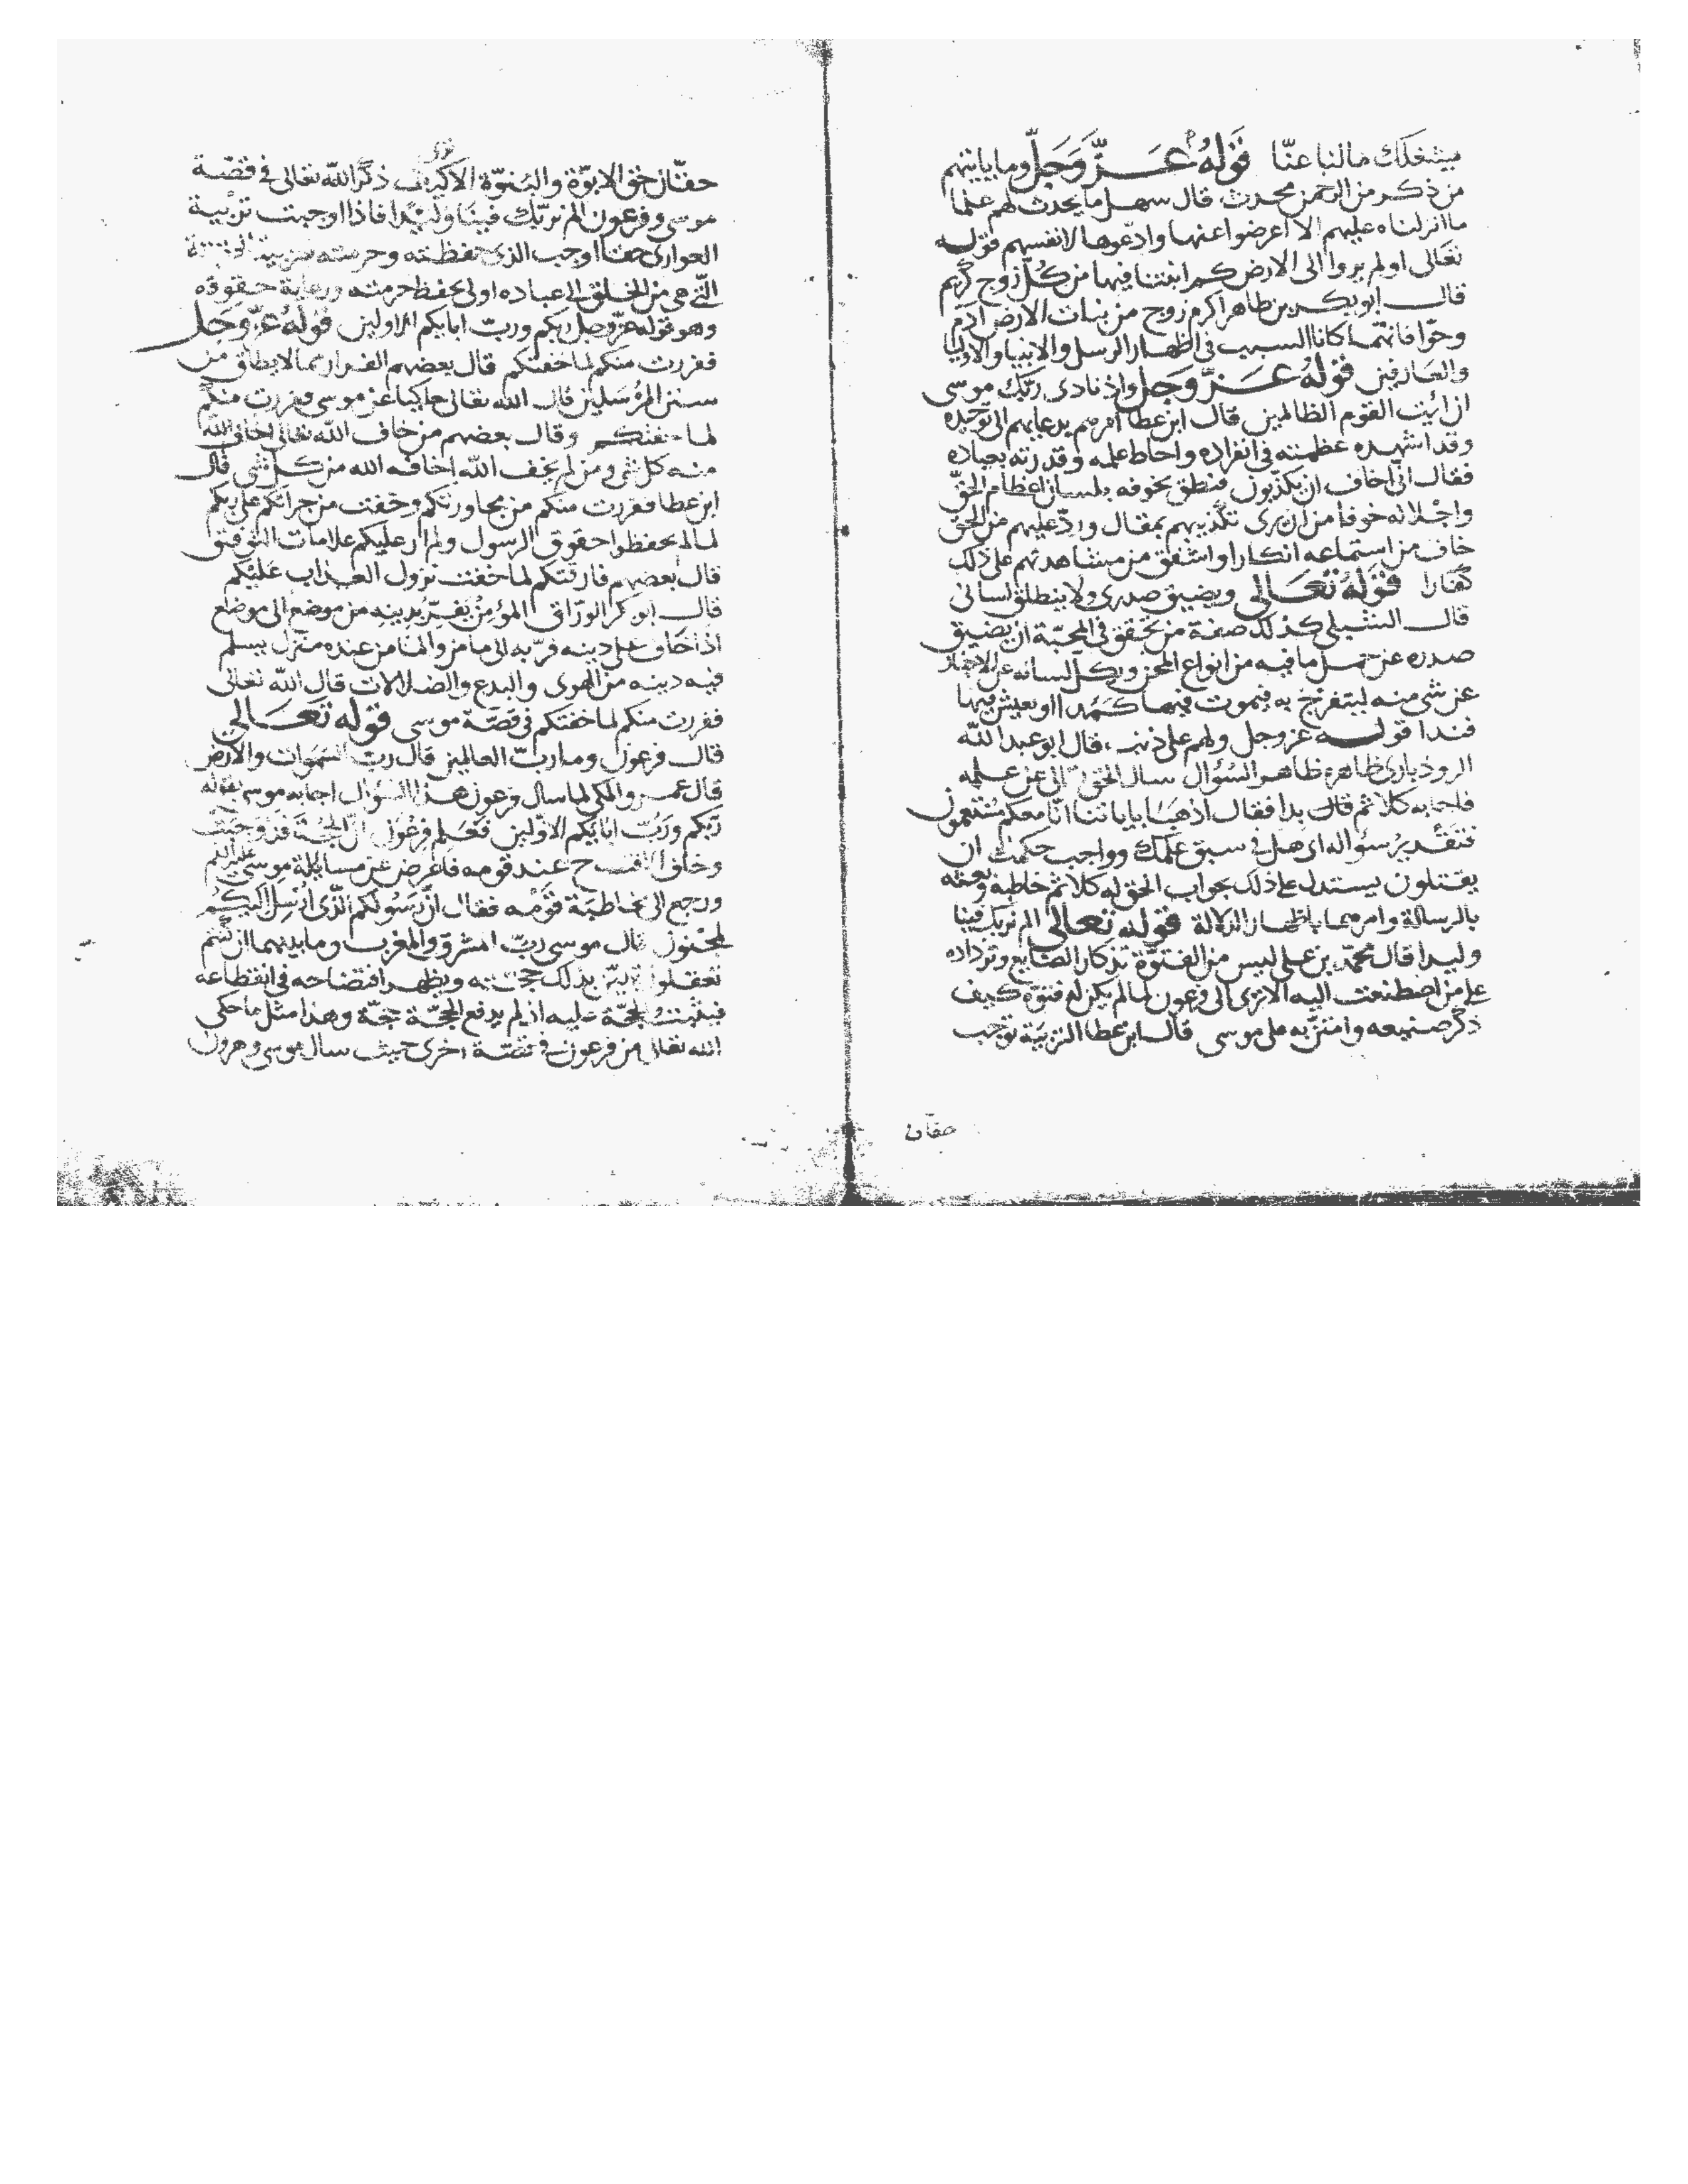 يشغلك مالنا عنّا قوله عَزَّ وَجَلَّ وما ياتيهم
من ذكر من الرحمن محدث، قال سهل ما يحدث لهم علما
ما انزلناه عليهم الا اعرضوا عنها وادّعوها لانفسهم قوله
تعالى اولم يروا الى الارض كم انبتنا فيها من كُلّ زوج كريم
قال ابو بكر بن طاهر اكرم زوج من بنات الارض ادم
وحوّا فانهما كانا السبب في اظهار الرسل والانبيا والاوليا
والعارفين قوله عَزَّ وَجَل واذ نادى ربّك موسى
ان ائت القوم الظالمين قال ابن عطا امرهم بدعايهم الى توحيده
وقد اشهده عظمته في انفراده واحاط علمه وقدرته بعباده
فقال انّى اخاف ان يكذّبون فنطق بخوفه بلسان اعظام الحقّ
واجلاله خوفا من ان يرى تكذيبهم بمقال وردّ عليهم من الحق
خاف من استماعه انكارا واشفق من مشاهدتهم على ذلك
كفارا قوله تَعَالى ويضيق صدرى ولا ينطلق لسانى
قال الشبلى كذلك صفة من تحقق في المحبّة ان يضيق
صدره عن حمل ما فيه من انواع المحن ويكلّ لسانه عن الاخبار
عن شى منه ليتفرج به فيموت فيها كمدا او يعيش فيها
فندا قوله عز وجل ولهم على ذنب، قال ابو عبد الله
الروذبارى ظاهره ظاهر السُؤال سال الحق الى عن علمه
فاجابه كلا ثم قال بدا فقال اذهبَا باياتنا انّا معكم مستمعون
فتقديرُ سؤاله اى هل في سبق علمك وواجب حكمتك ان
يقتلون يستدل على ذلك بجواب الحق له كلا ثم خاطبه وبعثه
بالرسالة وامرهما باظهار الدلالة قوله تعالى الم نربك فينا
وليدا قال محمّد بن على ليس من الفتوّة تذكار الصنايع وترداده
على من اصطنعت اليه الا ترى الى فرعون لما لم يكن له فتوّة كيف
ذكر صنيعه وامتنّ به على موسى قال ابن عطا التربية توجب
حقان
حقّا كحق الابوّة والبنوّة الا كيف ذكر الله تعالى في قصّة
موسى وفرعون الم نربّك فينا وليدا فاذا اوجبت تربية
العوارى حقا اوجب الذى حفظته وحرمته تربية
التّى هى من الخلق الى عباده اولى بحفظ حرمته ورعاية حقوقه
وهو قوله عزّ وجل ربكم وربّ ابايكم الاولين قوله عزّ وَجَل
ففررت منكم لما خفتكم قال بعضهم الفرار مما لا يطاق من
سنن المُرسَلين قال الله تعالى حاكيا عن موسى ففررت منكم
لما خفتكم وقال بعضهم من خاف الله تعالى اخاف الله
منه كل شى ومن لم يخف الله اخافه الله من كل شى قال
ابن عطا ففررت منكم من مجاورتكم وخفت من جراتكم على ربكم
لما لم تحفظوا حقوق الرسول ولم ار عليكم علامات التوفيق
قال بعضهم فارقتكم لما خفت نزول العذاب عليكم
قال ابو بكر الورّاق المؤمنُ يفرّ بدينه من موضع الى موضع
اذا خاف على دينه فرّ به الى مامن والمامن عنده منزل يسلم
فيه دينه من الهوى والبدع والضلالات قال الله تعالى
ففررت منكم لما خفتكم في قصّة موسى قوله تَعَالى
قال فرعون وما ربّ العالمين قال ربّ السموات والارض
قال عمرو المكى لما سال فرعون هذا السؤال اجابه موسى بقوله
رَبّكم وَرَبّ ابايكم الاوّلين فعَلم فرعون انّ الحجّة قد وجبت
وخاف الفضح عند قومه فاعرض عن مسايلة موسى عليه السلم
ورجع الى مخاطبَة قومه فقال انّ رسولكم الّذى ارسل اليكم
لمجنون قال موسى ربّ المشرق والمغرب وما بينهما ان كنتم
تعقلون ليبيّن بذلك حجّته ويظهر افتضاحه في انقطاعه
فيثبت الحجّة عليه اذ لم يدفع الحجّة حجّة وهذا مثل ما حكى
الله تعالى من فرعون في قصّة اخرى حيث سال موسى وهرون